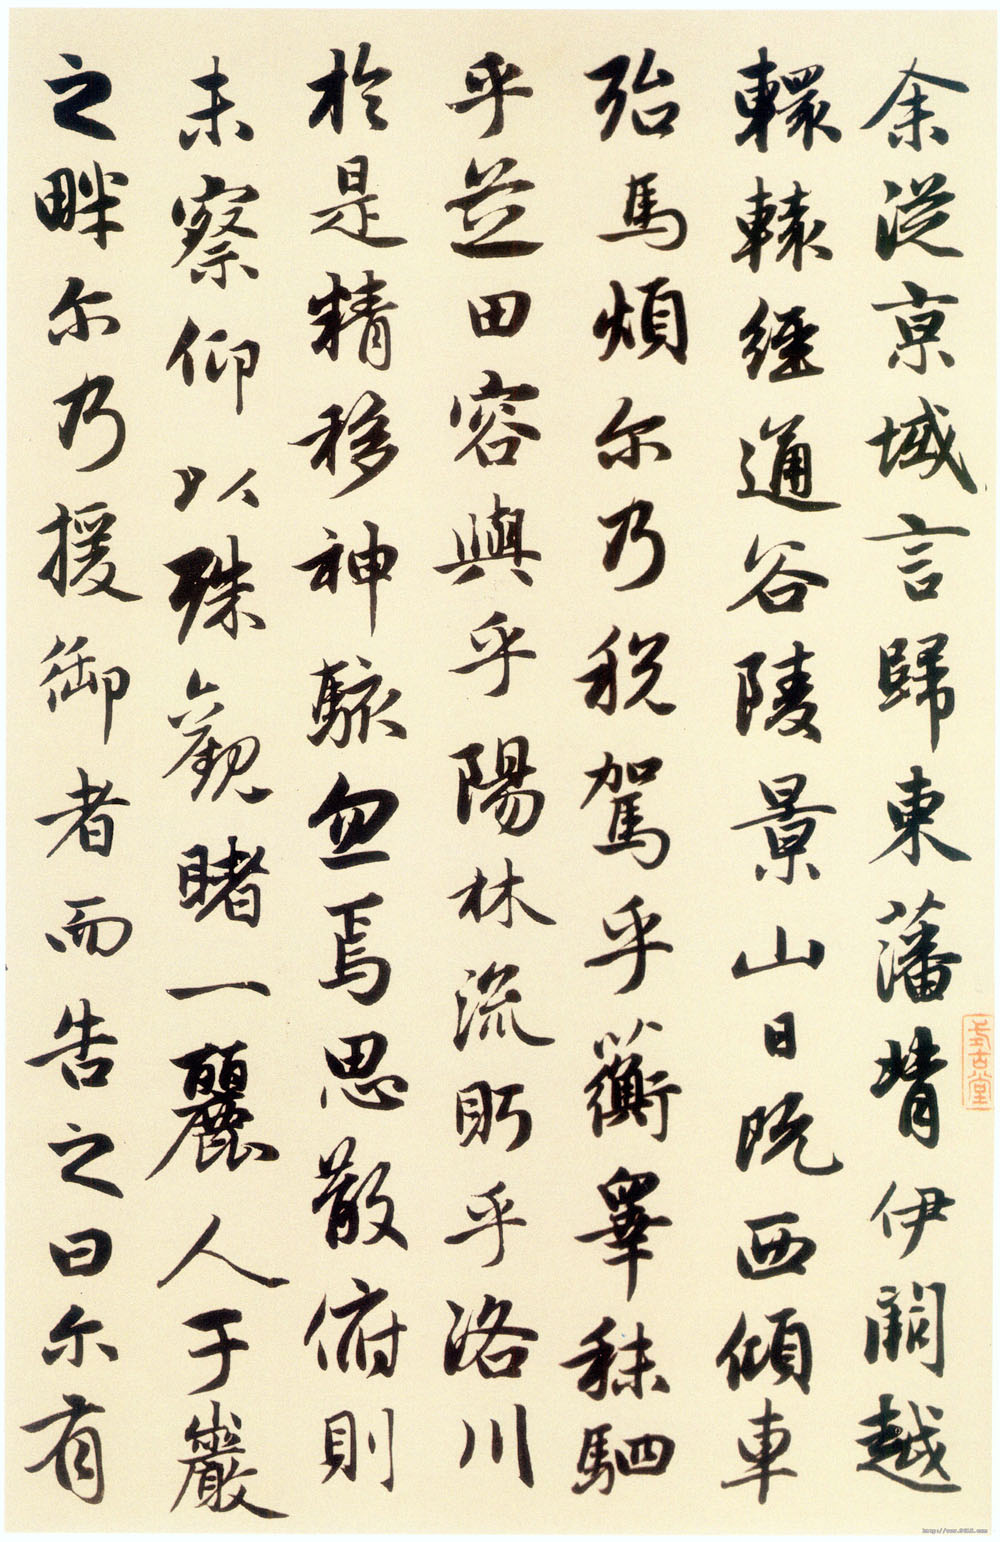 余從京域言歸東藩背伊闕越
轘轅經通谷陵景山日既西傾車
殆馬煩尔乃税駕乎蘅睪秣駟
乎芝田容與乎陽林流眄乎洛川
於是精移神駭忽焉思散俯則
未察仰以殊觀睹一麗人于巖
之畔尔乃援御者而告之曰尔有